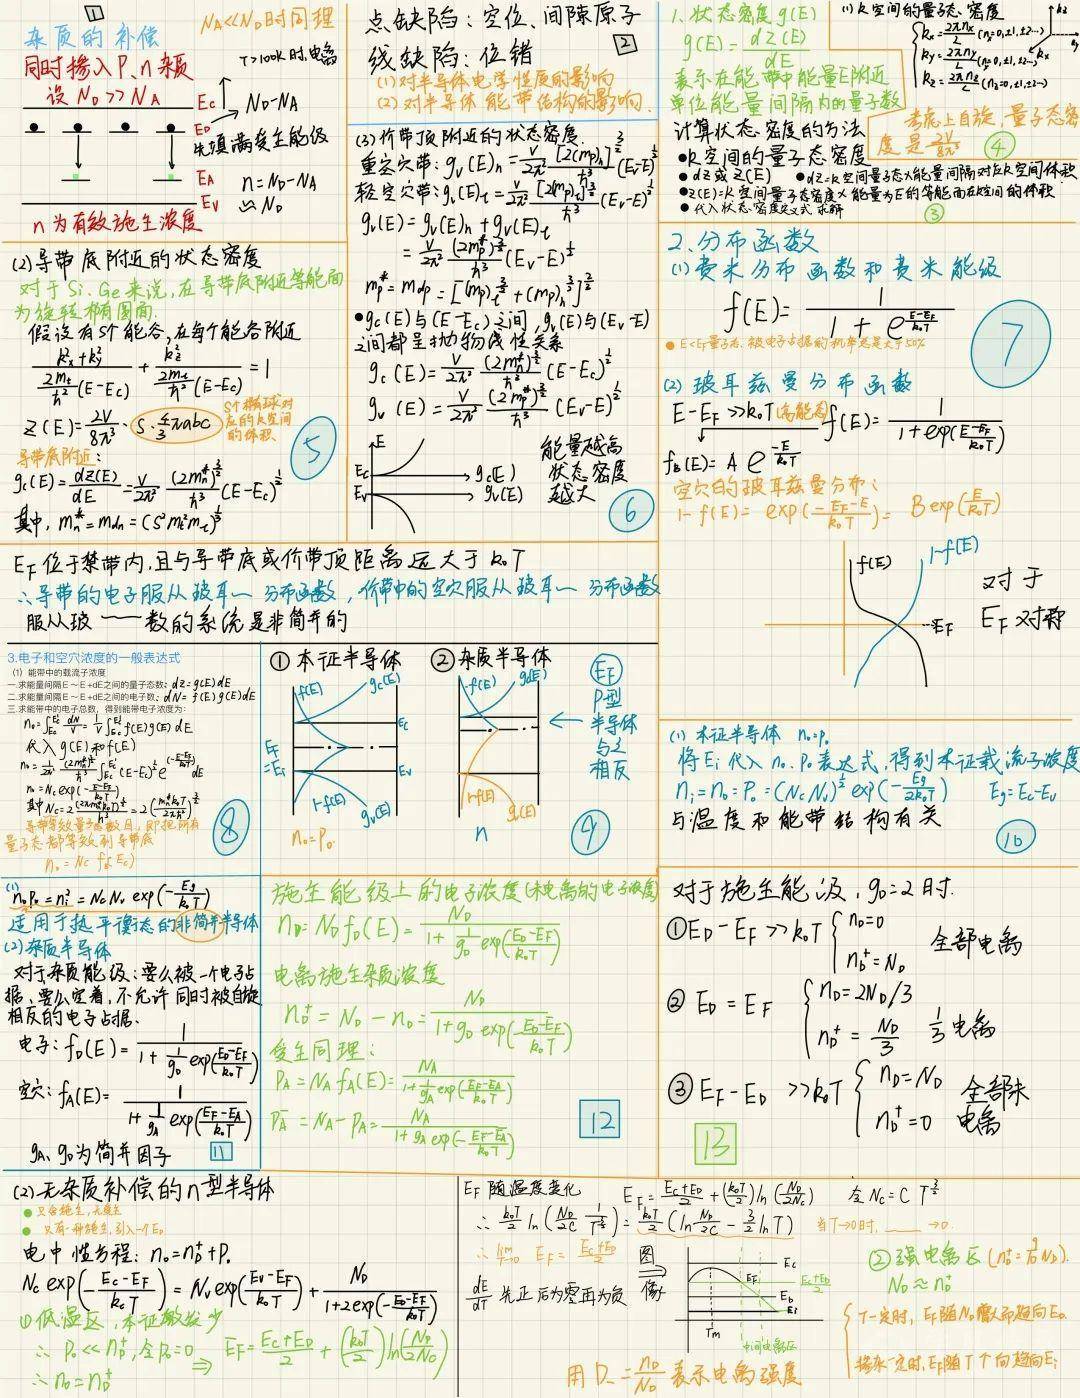 1
杂质的补偿
N_A<<N_D时同理
同时掺入P、n杂质
T>100K时,电离
设 N_D >> N_A
Ec
N_D-N_A
E_D
先填满受主能级
E_A
n=N_D-N_A
Ev
≈N_D
n为有效施主浓度
点缺陷:空位、间隙原子
线缺陷:位错
2
(1)对半导体电学性质的影响
(2)对半导体能带结构的影响.
1.状态密度 g(E)
g(E)=dz(E)/dE
表示在能带中能量E附近
单位能量间隔内的量子数
计算状态密度的方法
•k空间的量子态密度
•dz或Z(E)
•dz=k空间量子态×能量间隔对应k空间体积
•Z(E)=k空间量子态密度×能量为E的等能面在k空间的体积
•代入状态密度定义式求解
③
(1)k空间的量子态密度
kx=2πnx/L (nx=0,±1,±2…)
ky=2πny/L (ny=0,±1,±2…)
kz=2πnz/L (nz=0,±1,±2…)
kz
kx
考虑上自旋,量子态密
度是2V/8π³
④
(2)导带底附近的状态密度
对于Si、Ge来说,在导带底附近等能面
为旋转椭圆面.
假设有S个能谷,在每个能谷附近
(kx²+ky²)/(2m_t/ħ²(E-Ec))+kz²/(2m_l/ħ²(E-Ec))=1
Z(E)=2V/8π³·S·4/3πabc
S个椭球对
应的k空间
的体积.
5
导带底附近:
gc(E)=dz(E)/dE=V/2π² (2mn*)^(3/2)/ħ³ (E-Ec)^(1/2)
其中,mn*=mdn=(S²m_l m_t²)^(1/3)
(3)价带顶附近的状态密度
重空穴带:gv(E)h=V/2π² [2(mp)h]^(3/2)/ħ³ (Ev-E)^(1/2)
轻空穴带:gv(E)l=V/2π² [2(mp)l]^(3/2)/ħ³ (Ev-E)^(1/2)
gv(E)=gv(E)h+gv(E)l
=V/2π² (2mp*)^(3/2)/ħ³ (Ev-E)^(1/2)
mp*=mdp=[(mp)l^(3/2)+(mp)h^(3/2)]^(2/3)
•gc(E)与(E-Ec)之间,gv(E)与(Ev-E)
之间都呈抛物线性关系
gc(E)=V/2π² (2mn*)^(3/2)/ħ³ (E-Ec)^(1/2)
gv(E)=V/2π² (2mp*)^(3/2)/ħ³ (Ev-E)^(1/2)
E
Ec
Ev
gc(E)
gv(E)
能量越高
状态密度
越大
6
2.分布函数
(1)费米分布函数和费米能级
f(E)=1/(1+e^((E-EF)/k₀T))
•E<EF量子态被电子占据的机率总是大于50%
7
(2)玻耳兹曼分布函数
E-EF>>k₀T
f(E)=1/(1+exp((E-EF)/k₀T))
fB(E)=A e^(-E/k₀T)
空穴的玻耳兹曼分布:
1-f(E)=exp(-(EF-E)/k₀T)=B exp(E/k₀T)
f(E)
1-f(E)
EF
对于
EF对称
EF位于禁带内,且与导带底或价带顶距离远大于k₀T
∴导带的电子服从玻耳一分布函数,价带中的空穴服从玻耳一分布函数
服从玻——数的系统是非简并的
3.电子和空穴浓度的一般表达式
(1)能带中的载流子浓度
一.求能量间隔E~E+dE之间的量子态数:dz=g(E)dE
二.求能量间隔E~E+dE之间的电子数:dN=f(E)g(E)dE
三.求能带中的电子总数,得到能带电子浓度为:
n₀=∫dN/V=1/V∫f(E)g(E)dE
代入g(E)和f(E)
n₀=1/2π² (2mn*)^(3/2)/ħ³ ∫(E-Ec)^(1/2) e^(-(E-EF)/k₀T) dE
n₀=Nc exp(-(Ec-EF)/k₀T)
n₀=Nc f(Ec)
8
①本征半导体
f(E)
gc(E)
Ec
EF
=Ei
Ev
1-f(E)
gv(E)
n₀=p₀
②杂质半导体
f(E)
gc(E)
1-f(E)
gv(E)
n
EF
P型
半导体
与之
相反
9
(1)本征半导体 n₀=p₀
将Ei代入n₀、p₀表达式,得到本征载流子浓度
ni=n₀=p₀=(NcNv)^(1/2) exp(-Eg/2k₀T) Eg=Ec-Ev
与温度和能带结构有关
10
(1)
n₀p₀=ni²=NcNv exp(-Eg/k₀T)
适用于热平衡态的非简并半导体
(2)杂质半导体
对于杂质能级:要么被一个电子占
据,要么空着,不允许同时被自旋
相反的电子占据.
电子:fD(E)=1/(1+1/gD exp((ED-EF)/k₀T))
空穴:fA(E)=1/(1+1/gA exp((EF-EA)/k₀T))
gA、gD为简并因子
11
施主能级上的电子浓度(未电离的电子浓度)
nD=ND fD(E)=ND/(1+1/gD exp((ED-EF)/k₀T))
电离施主杂质浓度
nD⁺=ND-nD=ND/(1+gD exp(-(ED-EF)/k₀T))
受主同理:
PA=NA fA(E)=NA/(1+1/gA exp((EF-EA)/k₀T))
PA⁻=NA-PA=NA/(1+gA exp(-(EF-EA)/k₀T))
12
对于施主能级,gD=2时.
①ED-EF>>k₀T nD=0 nD⁺=ND 全部电离
②ED=EF nD=2ND/3 nD⁺=ND/3 1/3电离
③EF-ED>>k₀T nD=ND nD⁺=0 全部未电离
13
(2)无杂质补偿的n型半导体
•只含施主,无受主
•只有一种施主,引入一个ED
电中性方程:n₀=nD⁺+P₀
Nc exp(-(Ec-EF)/k₀T)=Nv exp((Ev-EF)/k₀T)+ND/(1+2exp(-(ED-EF)/k₀T))
①低温区,本征激发少
∴P₀<<nD⁺,令P₀=0
∴n₀=nD⁺
⇒EF=(Ec+ED)/2+(k₀T/2)ln(ND/2Nc)
EF随温度变化
EF=(Ec+ED)/2+(k₀T/2)ln(ND/2Nc) 令Nc=CT^(3/2)
∴k₀T/2 ln(ND/2C 1/T^(3/2))=k₀T/2(ln ND/2C-3/2 lnT) 当T→0时,____→0.
∴lim T→0 EF=(Ec+ED)/2
dE/dT先正后为零再为负
图像
Ec
EF
(Ec+ED)/2
ED
Ei
Tm
中间电离区
用D₋=nD/ND表示电离强度
②强电离区(nD⁺=9/10 ND).
ND≈nD⁺
T一定时,EF随ND增大而趋向ED.
掺杂一定时,EF随T个向趋向Ei